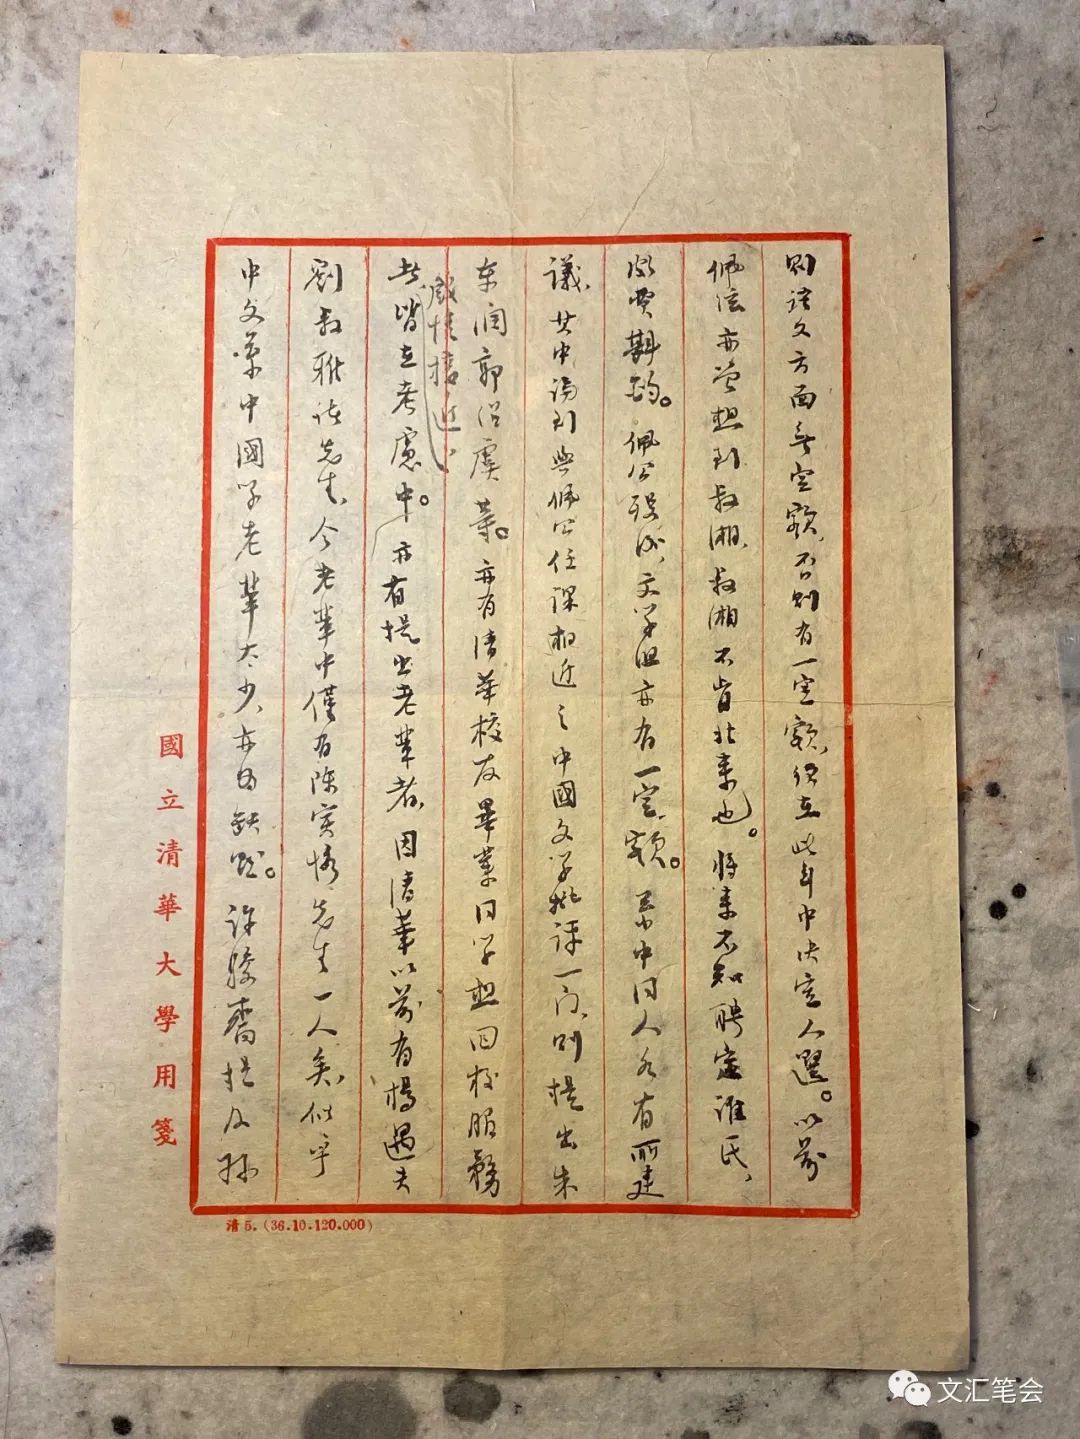 則語文方面無空額，否則有一空額，須在此年中決定人選。以前
佩弦亦曾想到叔湘，叔湘不肯北來也。將來不知聘定誰氏，
頗費斟酌。佩公歿後，文學組亦有一空額。系中同人各有所建
議，其中論到與佩公任課相近之中國文學批評一門，則提出朱
東潤郭紹虞等。亦有清華校友畢業同學想回校服務
感情接近、
者，皆在考慮中。亦有提出老輩者，因清華以前有楊遇夫
劉叔雅諸先生，今老輩中僅有陳寅恪先生一人矣，似乎
中文系中國學老輩太少，亦為缺點。許駿齋提及孫
國立清華大學用箋
清5.(36.10.120.000)
文汇笔会